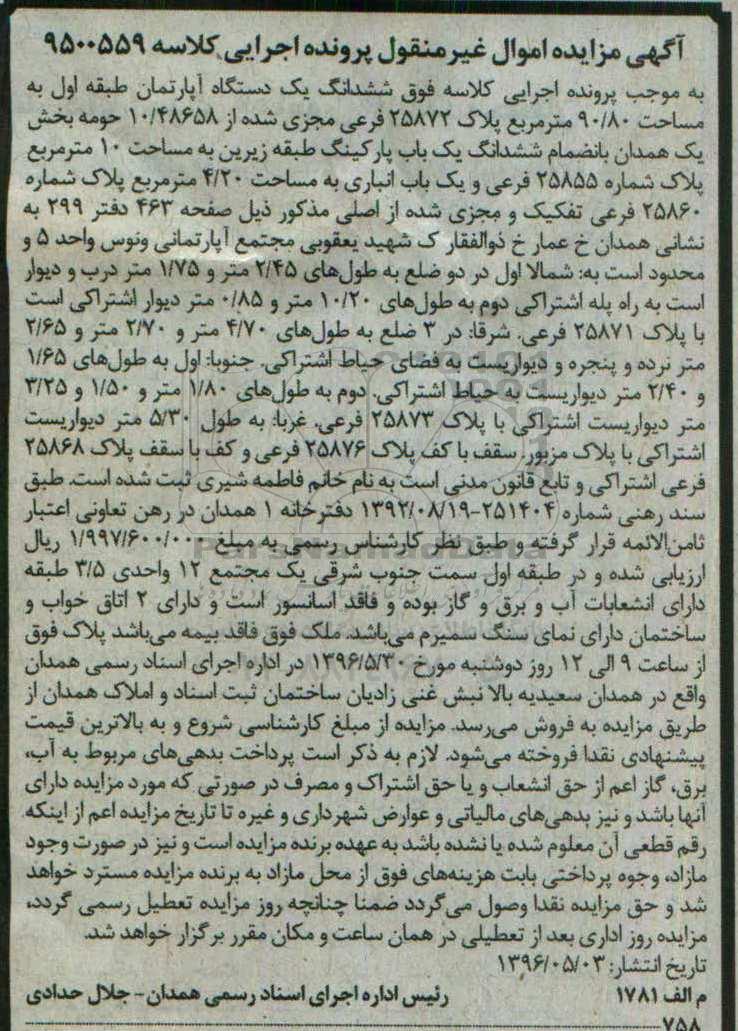 آگهی مزایده اموال غیرمنقول پرونده اجرایی کلاسه ۹۵۰۰۵۵۹
به موجب پرونده اجرایی کلاسه فوق ششدانگ یک دستگاه آپارتمان طبقه اول به
مساحت ۹۰/۸۰ مترمربع پلاک ۲۵۸۷۲ فرعی مجزی شده از ۱۰/۴۸۶۵۸ حومه بخش
یک همدان بانضمام ششدانگ یک باب پارکینگ طبقه زیرین به مساحت ۱۰ مترمربع
پلاک شماره ۲۵۸۵۵ فرعی و یک باب انباری به مساحت ۴/۲۰ مترمربع پلاک شماره
۲۵۸۶۰ فرعی تفکیک و مجزی شده از اصلی مذکور ذیل صفحه ۴۶۳ دفتر ۲۹۹ به
نشانی همدان خ عمار خ ذوالفقار ک شهید یعقوبی مجتمع آپارتمانی ونوس واحد ۵ و
محدود است به: شمالا اول در دو ضلع به طول‌های ۲/۴۵ متر و ۱/۷۵ متر درب و دیوار
است به راه پله اشتراکی دوم به طول‌های ۱۰/۲۰ متر و ۰/۸۵ متر دیوار اشتراکی است
با پلاک ۲۵۸۷۱ فرعی. شرقا: در ۳ ضلع به طول‌های ۴/۷۰ متر و ۲/۷۰ متر و ۲/۶۵
متر نرده و پنجره و دیواریست به فضای حیاط اشتراکی. جنوبا: اول به طول‌های ۱/۶۵
و ۲/۴۰ متر دیواریست به حیاط اشتراکی. دوم به طول‌های ۱/۸۰ متر و ۱/۵۰ و ۳/۲۵
متر دیواریست اشتراکی با پلاک ۲۵۸۷۳ فرعی. غربا: به طول ۵/۳۰ متر دیواریست
اشتراکی با پلاک مزبور. سقف با کف پلاک ۲۵۸۷۶ فرعی و کف با سقف پلاک ۲۵۸۶۸
فرعی اشتراکی و تابع قانون مدنی است به نام خانم فاطمه شیری ثبت شده است. طبق
سند رهنی شماره ۲۵۱۴۰۴-۱۳۹۲/۰۸/۱۹ دفترخانه ۱ همدان در رهن تعاونی اعتبار
ثامن‌الائمه قرار گرفته و طبق نظر کارشناس رسمی به مبلغ ۱/۹۹۷/۶۰۰/۰۰۰ ریال
ارزیابی شده و در طبقه اول سمت جنوب شرقی یک مجتمع ۱۲ واحدی ۳/۵ طبقه
دارای انشعابات آب و برق و گاز بوده و فاقد آسانسور است و دارای ۲ اتاق خواب و
ساختمان دارای نمای سنگ سمیرم می‌باشد. ملک فوق فاقد بیمه می‌باشد پلاک فوق
از ساعت ۹ الی ۱۲ روز دوشنبه مورخ ۱۳۹۶/۵/۳۰ در اداره اجرای اسناد رسمی همدان
واقع در همدان سعیدیه بالا نبش غنی زادیان ساختمان ثبت اسناد و املاک همدان از
طریق مزایده به فروش می‌رسد. مزایده از مبلغ کارشناسی شروع و به بالاترین قیمت
پیشنهادی نقدا فروخته می‌شود. لازم به ذکر است پرداخت بدهی‌های مربوط به آب،
برق، گاز اعم از حق انشعاب و یا حق اشتراک و مصرف در صورتی که مورد مزایده دارای
آنها باشد و نیز بدهی‌های مالیاتی و عوارض شهرداری و غیره تا تاریخ مزایده اعم از اینکه
رقم قطعی آن معلوم شده یا نشده باشد به عهده برنده مزایده است و نیز در صورت وجود
مازاد، وجوه پرداختی بابت هزینه‌های فوق از محل مازاد به برنده مزایده مسترد خواهد
شد و حق مزایده نقدا وصول می‌گردد ضمنا چنانچه روز مزایده تعطیل رسمی گردد،
مزایده روز اداری بعد از تعطیلی در همان ساعت و مکان مقرر برگزار خواهد شد.
تاریخ انتشار: ۱۳۹۶/۰۵/۰۳
م الف ۱۷۸۱ رئیس اداره اجرای اسناد رسمی همدان - جلال حدادی
۷۵۸
ParsNamadData